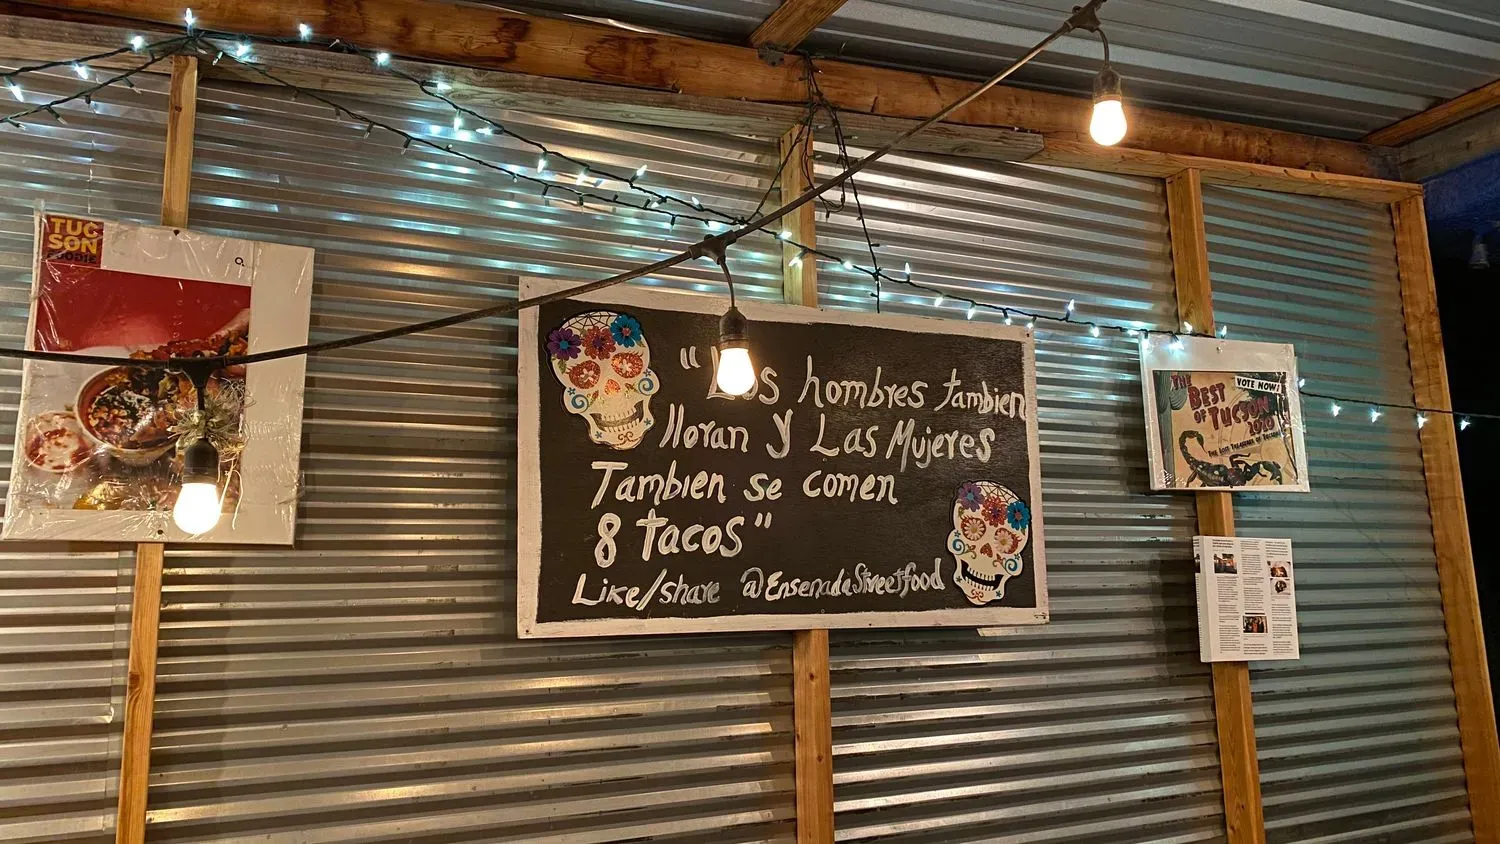 TUC
SON
FOODIE
"Los hombres tambien
lloran y Las Mujeres
Tambien se comen
8 tacos"
Like/share @EnsenadaStreetfood
VOTE NOW!
THE
BEST
OF TUCSON
2020